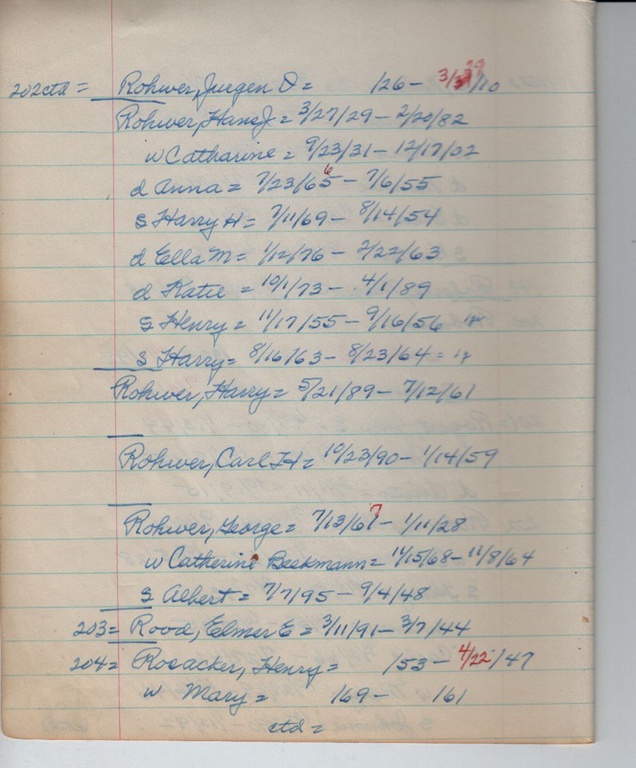 202ctd = Rohwer, Jurgen D = /26 - 3/23/10
Rohwer, Hans J = 3/27/29 - 2/20/82
w Catharine = 9/23/31 - 12/17/02
d Anna = 7/23/65 6 - 7/6/55
s Harry H = 7/11/69 - 8/14/54
d Ella M = 1/12/76 - 2/22/63
d Katie = 10/1/73 - 4/1/89
s Henry = 11/17/55 - 9/16/56
s Harry = 8/16/63 - 8/23/64 =
Rohwer, Harry = 5/21/89 - 7/12/61
Rohwer, Carl H = 10/23/90 - 1/14/59
Rohwer, George = 7/13/67 - 1/11/28
w Catherine Beekmann = 11/15/68 - 11/8/64
s Albert = 7/7/95 - 9/4/48
203 = Rood, Elmer E = 3/11/91 - 3/7/44
204 = Rosacker, Henry = /53 - 4/22/47
w Mary = /69 - /61
ctd =